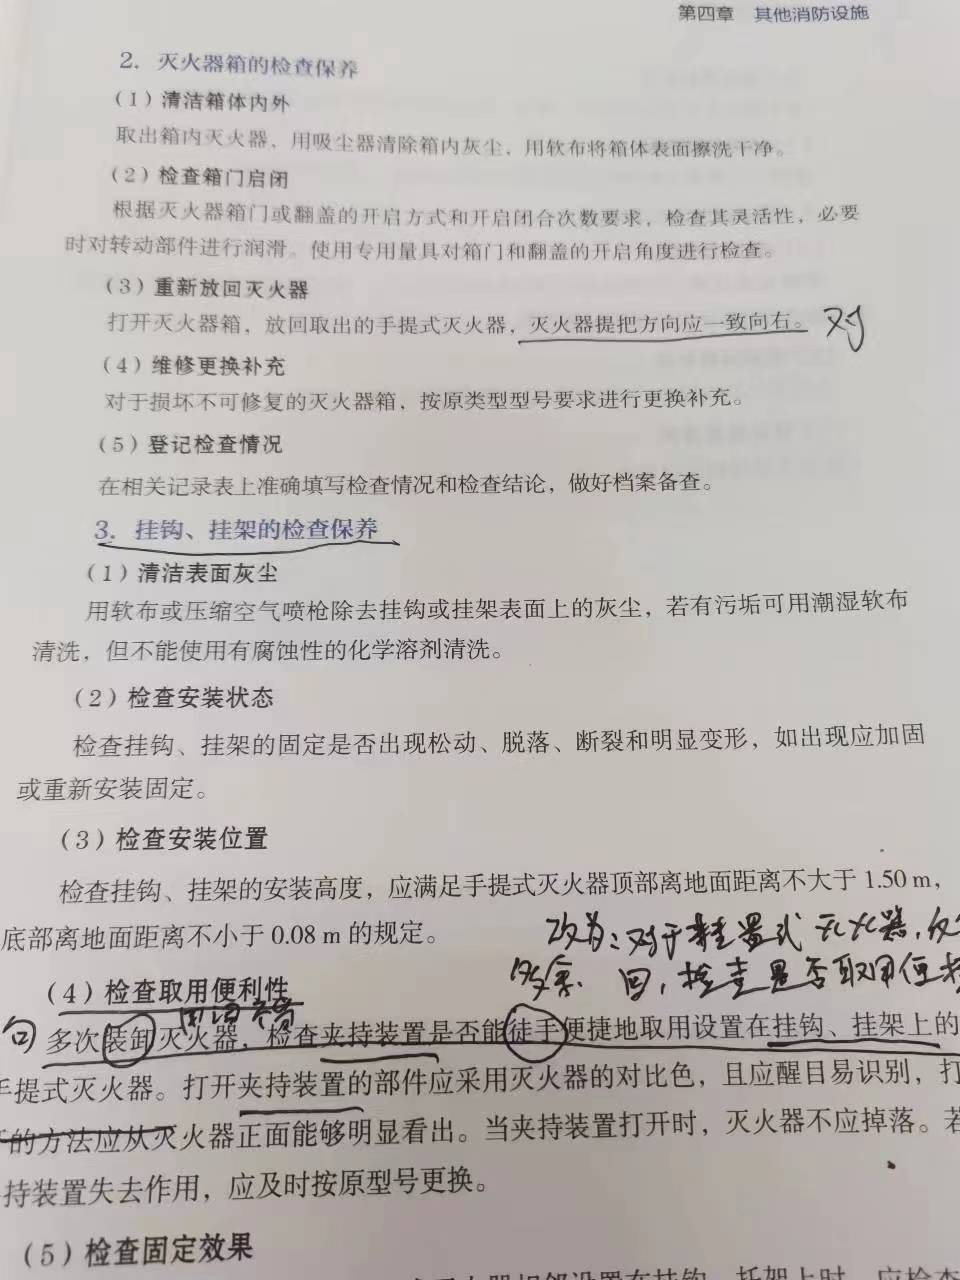 第四章 其他消防设施
2. 灭火器箱的检查保养
(1)清洁箱体内外
取出箱内灭火器,用吸尘器清除箱内灰尘,用软布将箱体表面擦洗干净。
(2)检查箱门启闭
根据灭火器箱门或翻盖的开启方式和开启闭合次数要求,检查其灵活性,必要
时对转动部件进行润滑。使用专用量具对箱门和翻盖的开启角度进行检查。
(3)重新放回灭火器
打开灭火器箱,放回取出的手提式灭火器,灭火器提把方向应一致向右。 对
(4)维修更换补充
对于损坏不可修复的灭火器箱,按原类型型号要求进行更换补充。
(5)登记检查情况
在相关记录表上准确填写检查情况和检查结论,做好档案备查。
3. 挂钩、挂架的检查保养
(1)清洁表面灰尘
用软布或压缩空气喷枪除去挂钩或挂架表面上的灰尘,若有污垢可用潮湿软布
清洗,但不能使用有腐蚀性的化学溶剂清洗。
(2)检查安装状态
检查挂钩、挂架的固定是否出现松动、脱落、断裂和明显变形,如出现应加固
或重新安装固定。
(3)检查安装位置
检查挂钩、挂架的安装高度,应满足手提式灭火器顶部离地面距离不大于 1.50 m,
底部离地面距离不小于 0.08 m 的规定。
改为:对于 式灭火器,
回,检查是否取用便
(4)检查取用便利性
句 多次装卸灭火器,检查夹持装置是否能徒手便捷地取用设置在挂钩、挂架上的
手提式灭火器。打开夹持装置的部件应采用灭火器的对比色,且应醒目易识别,打
的方法应从灭火器正面能够明显看出。当夹持装置打开时,灭火器不应掉落。若
持装置失去作用,应及时按原型号更换。
(5)检查固定效果